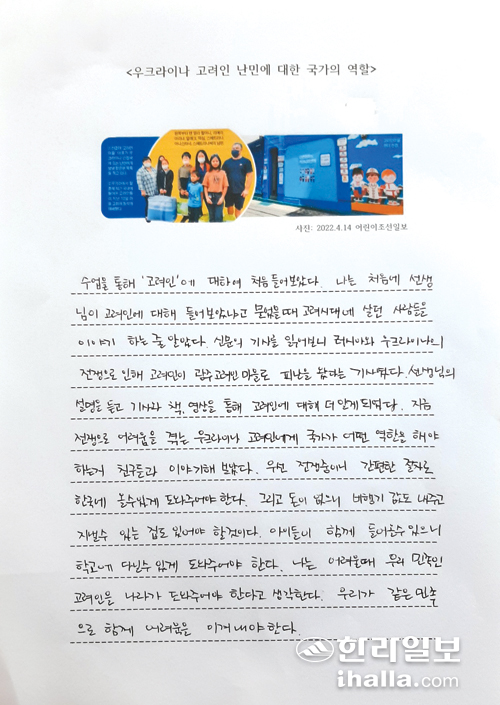 <우크라이나 고려인 난민에 대한 국가의 역할>
사진: 2022.4.14 어린이조선일보
수업을 통해 '고려인'에 대하여 처음 들어보았다. 나는 처음에 선생
님이 고려인에 대해 들어보았냐고 물었을때 고려시대에 살던 사람들을
이야기 하는 줄 알았다. 신문의 기사를 읽어보니 러시아와 우크라이나의
전쟁으로 인해 고려인이 광주고려인 마을로 피난을 왔다는 기사였다. 선생님의
설명을 듣고 기사와 책, 영상을 통해 고려인에 대해 더 알게 되었다. 지금
전쟁으로 어려움을 겪는 우크라이나 고려인에게 국가가 어떤 역할을 해야
하는지 친구들과 이야기해 보았다. 우선 전쟁중이니 간편한 절차로
한국에 올수있게 도와주어야 한다. 그리고 돈이 없으니 비행기 값도 내주고
지낼수 있는 집도 있어야 할것이다. 아이들이 함께 들어올수 있으니
학교에 다닐수 있게 도와주어야 한다. 나는 어려울때 우리 민족인
고려인을 나라가 도와주어야 한다고 생각한다. 우리가 같은 민족
으로 함께 어려움을 이겨내야 한다.
한라일보
ihalla.com